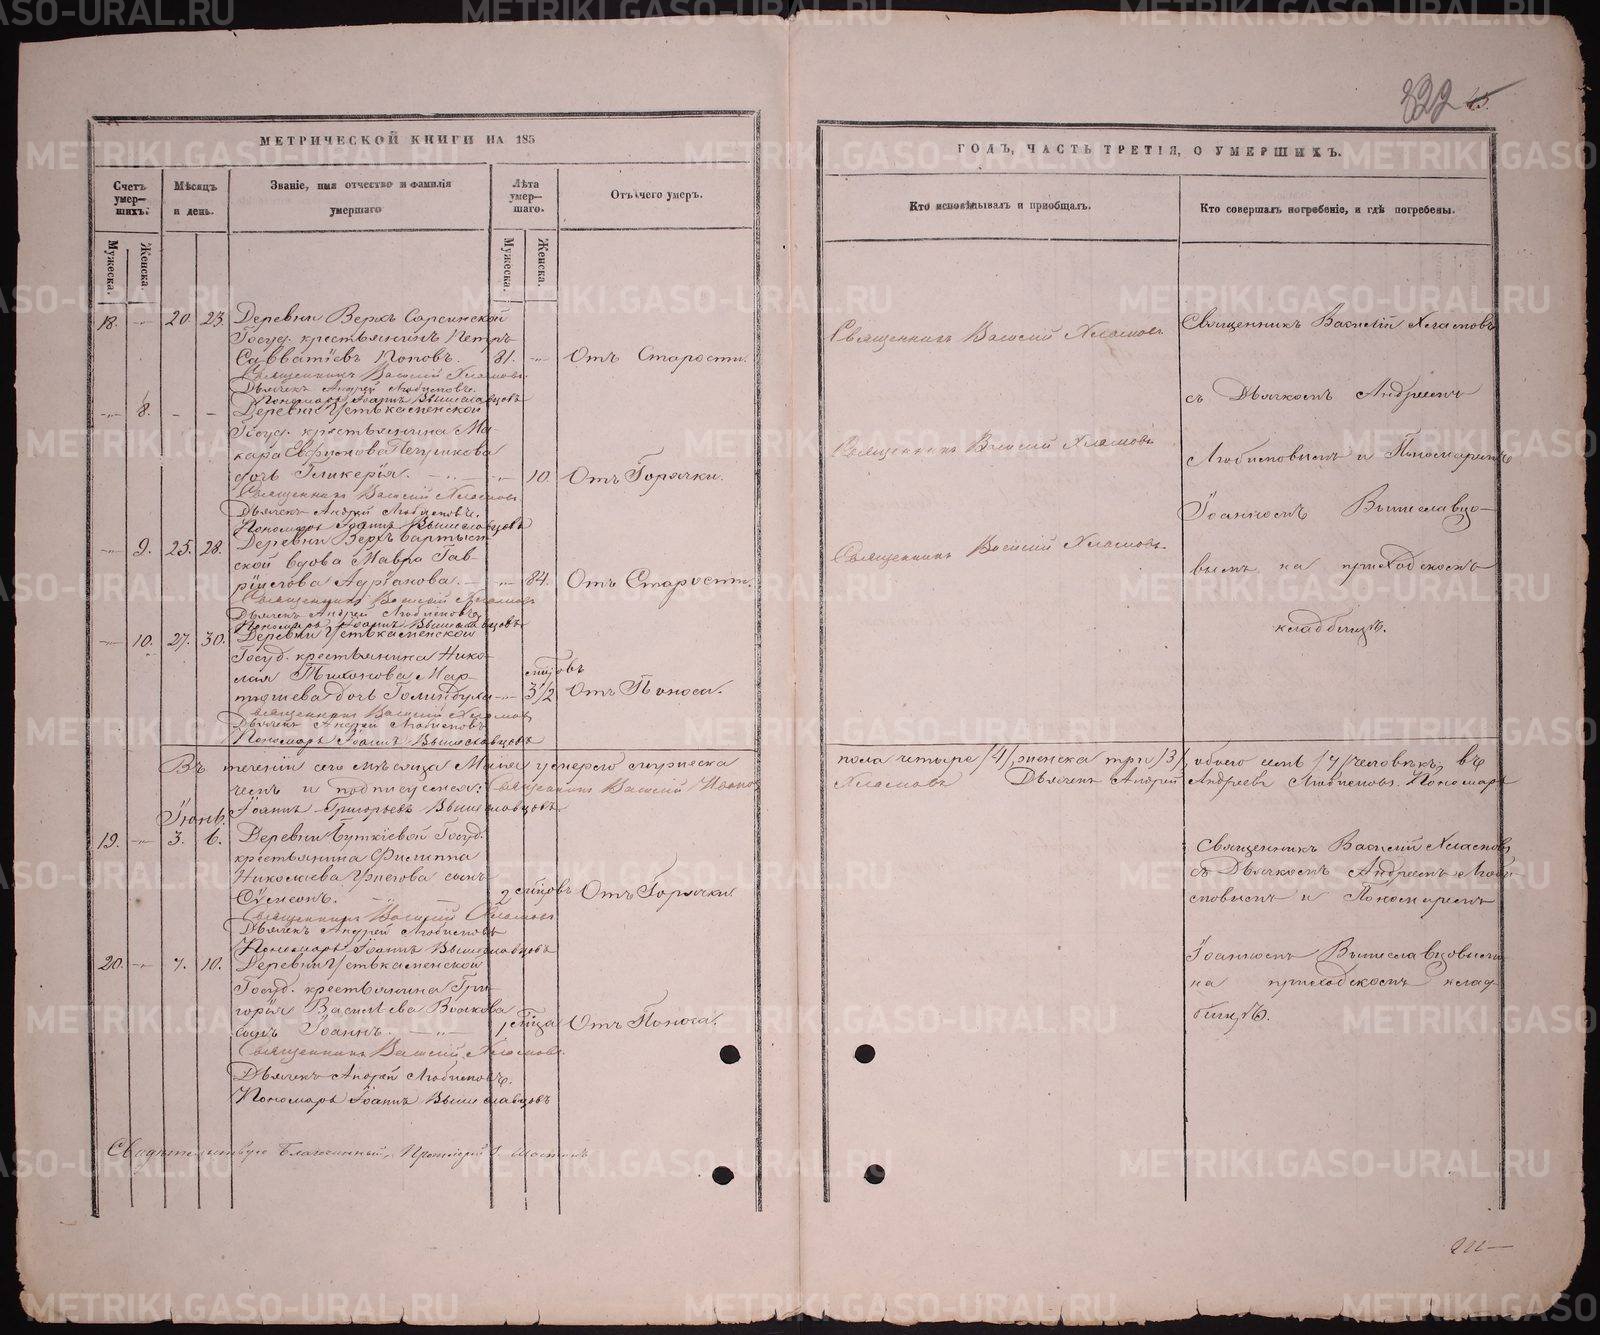 322 45.
МЕТРИЧЕСКОЙ КНИГИ НА 185
ГОДЪ, ЧАСТЬ ТРЕТІЯ, О УМЕРШИХЪ.
Счетъ умер-шихъ.
Мѣсяцъ и день.
Званіе, имя отчество и фамилія
умершаго
Лѣта умер-шаго.
Отъ чего умеръ.
Кто исповѣдывалъ и пріобщалъ.
Кто совершалъ погребеніе, и гдѣ погребены.
Мужеска. Женска.
Мужеска. Женска.
18. 20. 23. Деревни Верхъ Сарсинской
Госуд. крестьянинъ Петръ
Савватіевъ Поповъ. 81. Отъ Старости.
Священникъ Василій Хламовъ
Дьячекъ Андрей Любимовъ.
Пономарь Іоаннъ Вышеславцовъ
8. Деревни Устькаменской
Госуд. крестьянина Ма-
кара
дочь Гликерія. 10. Отъ Горячки.
Священникъ Василій Хламовъ
Дьячекъ Андрей Любимовъ.
Пономарь Іоаннъ Вышеславцовъ
9. 25. 28. Деревни Верхъ
ской вдова Мавра Гав-
рилова Адріанова. 84. Отъ Старости.
Священникъ Василій Хламовъ
Дьячекъ Андрей Любимовъ
Пономарь Іоаннъ Вышеславцовъ
10. 27. 30. Деревни Устькаменской
Госуд. крестьянина Нико-
лая Тихонова Мар-
тюшева дочь 3 1/2 Отъ Поноса.
Священникъ Василій Хламовъ
Дьячекъ Андрей Любимовъ
Пономарь Іоаннъ Вышеславцовъ
Священникъ Василій Хламовъ
Священникъ Василій Хламовъ
Священникъ Василій Хламовъ
Священникъ Василій Хламовъ
съ Дьячкомъ Андреемъ
Любимовымъ и Пономаремъ
Іоанномъ Вышеславцо-
вымъ на приходскомъ
кладбищѣ.
Въ теченіи сего мѣсяца Маія умерло мужеска пола четыре /4/, женска три /3/, обоего /7/ человѣкъ, въ
чемъ и подписуемся: Священникъ Василій Хламовъ Дьячекъ Андрей Андреевъ Любимовъ. Пономарь
Іоаннъ Григорьевъ Вышеславцовъ.
Іюнь.
19. 3. 6. Деревни Буткіевой Госуд.
крестьянина Филиппа
Николаева сынъ
Сѵмеонъ. 2 Отъ Горячки
Священникъ Василій Хламовъ
Дьячекъ Андрей Любимовъ
Пономарь Іоаннъ Вышеславцовъ
20. 7. 10. Деревни Устькаменской
Госуд. крестьянина Гри-
горія Васильева Волкова
сынъ Іоаннъ. 1 Отъ Поноса.
Священникъ Василій Хламовъ.
Дьячекъ Андрей Любимовъ.
Пономарь Іоаннъ Вышеславцовъ
Священникъ Василій Хламовъ
съ Дьячкомъ Андреемъ Люби-
мовымъ и Пономаремъ
Іоанномъ Вышеславцовымъ
на приходскомъ клад-
бищѣ.
Свидѣтельствую Благочинный, Протоіерей
METRIKI.GASO-URAL.RU